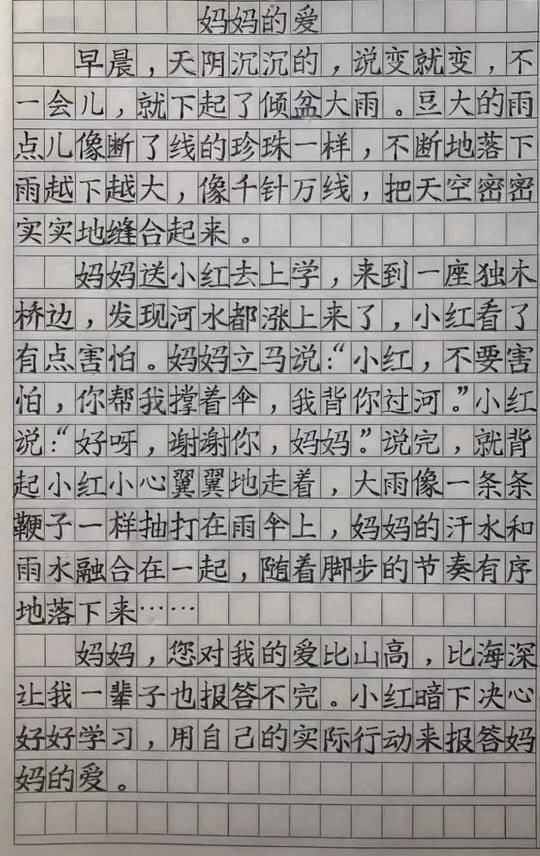 妈妈的爱
早晨，天阴沉沉的，说变就变，不
一会儿，就下起了倾盆大雨。豆大的雨
点儿像断了线的珍珠一样，不断地落下
雨越下越大，像千针万线，把天空密密
实实地缝合起来。
妈妈送小红去上学，来到一座独木
桥边，发现河水都涨上来了，小红看了
有点害怕。妈妈立马说：“小红，不要害
怕，你帮我撑着伞，我背你过河。”小红
说：“好呀，谢谢你，妈妈。”说完，就背
起小红小心翼翼地走着，大雨像一条条
鞭子一样抽打在雨伞上，妈妈的汗水和
雨水融合在一起，随着脚步的节奏有序
地落下来……
妈妈，您对我的爱比山高，比海深
让我一辈子也报答不完。小红暗下决心
好好学习，用自己的实际行动来报答妈
妈的爱。